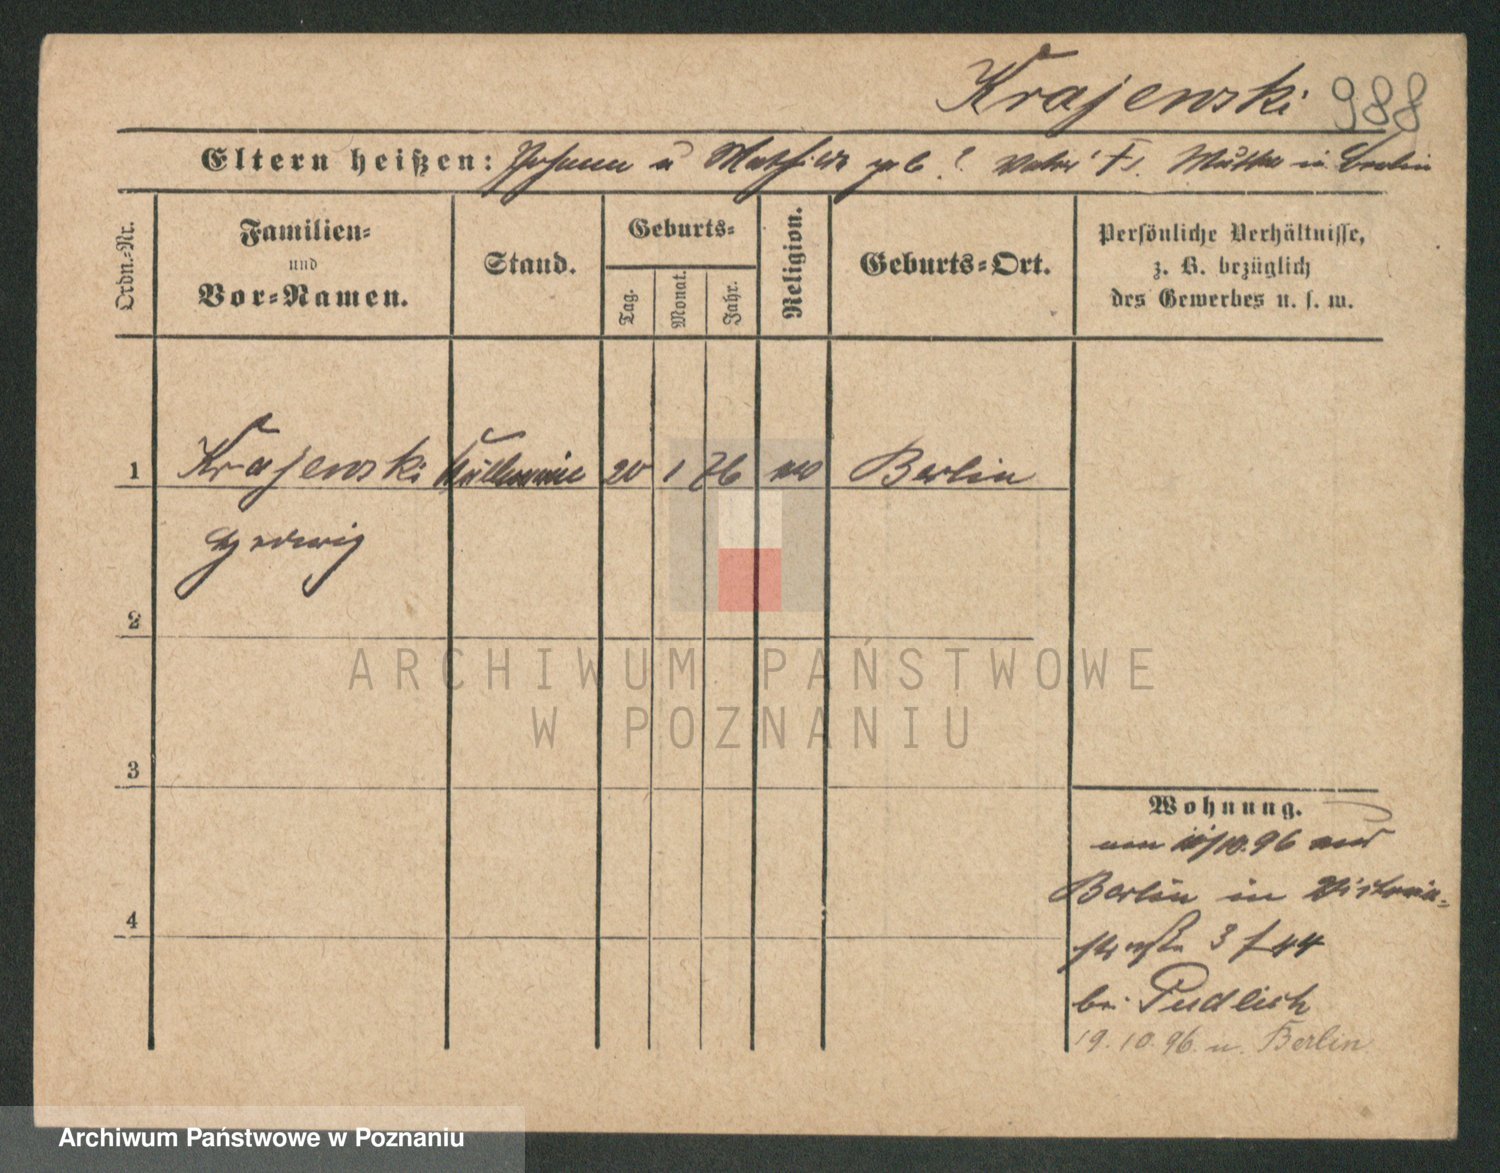 Krajenski 988
Eltern heißen: Johann u Mathilde geb. ? Vater †. Mutter in Berlin
Ordn.-Nr.
Familien-
und
Vor-Namen.
Stand.
Geburts-
Tag.
Monat.
Jahr.
Religion.
Geburts-Ort.
Persönliche Verhältnisse,
z. B. bezüglich
des Gewerbes u. s. w.
1 Krajenski Kellnerin 20 1 76 Berlin
Hedwig
2
3
4
Wohnung.
10.96
Berlin in Victoria-
straße 3
bei Pudlich
19.10.96. n. Berlin
ARCHIWUM PAŃSTWOWE
W POZNANIU
Archiwum Państwowe w Poznaniu